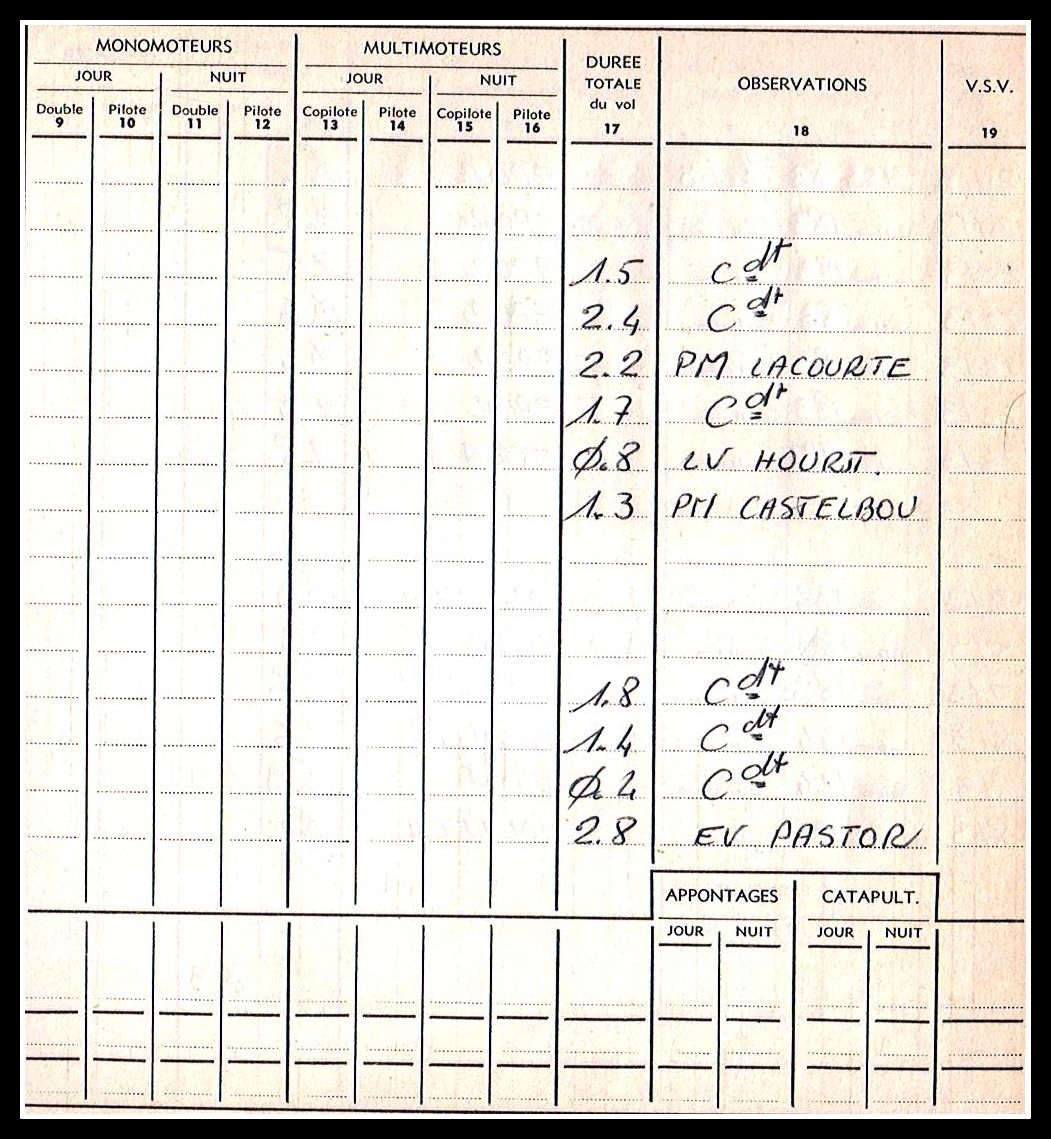 MONOMOTEURS MULTIMOTEURS DUREE TOTALE du vol OBSERVATIONS V.S.V.
JOUR NUIT JOUR NUIT
Double Pilote Double Pilote Copilote Pilote Copilote Pilote
9 10 11 12 13 14 15 16 17 18 19
1.5 Cdt
2.4 Cdt
2.2 PM LACOURTE
1.7 Cdt
Ø.8 LV HOURIT.
1.3 PM CASTELBOU
1.8 Cdt
1.4 Cdt
Ø.4 Cdt
2.8 EV PASTOR
APPONTAGES CATAPULT.
JOUR NUIT JOUR NUIT